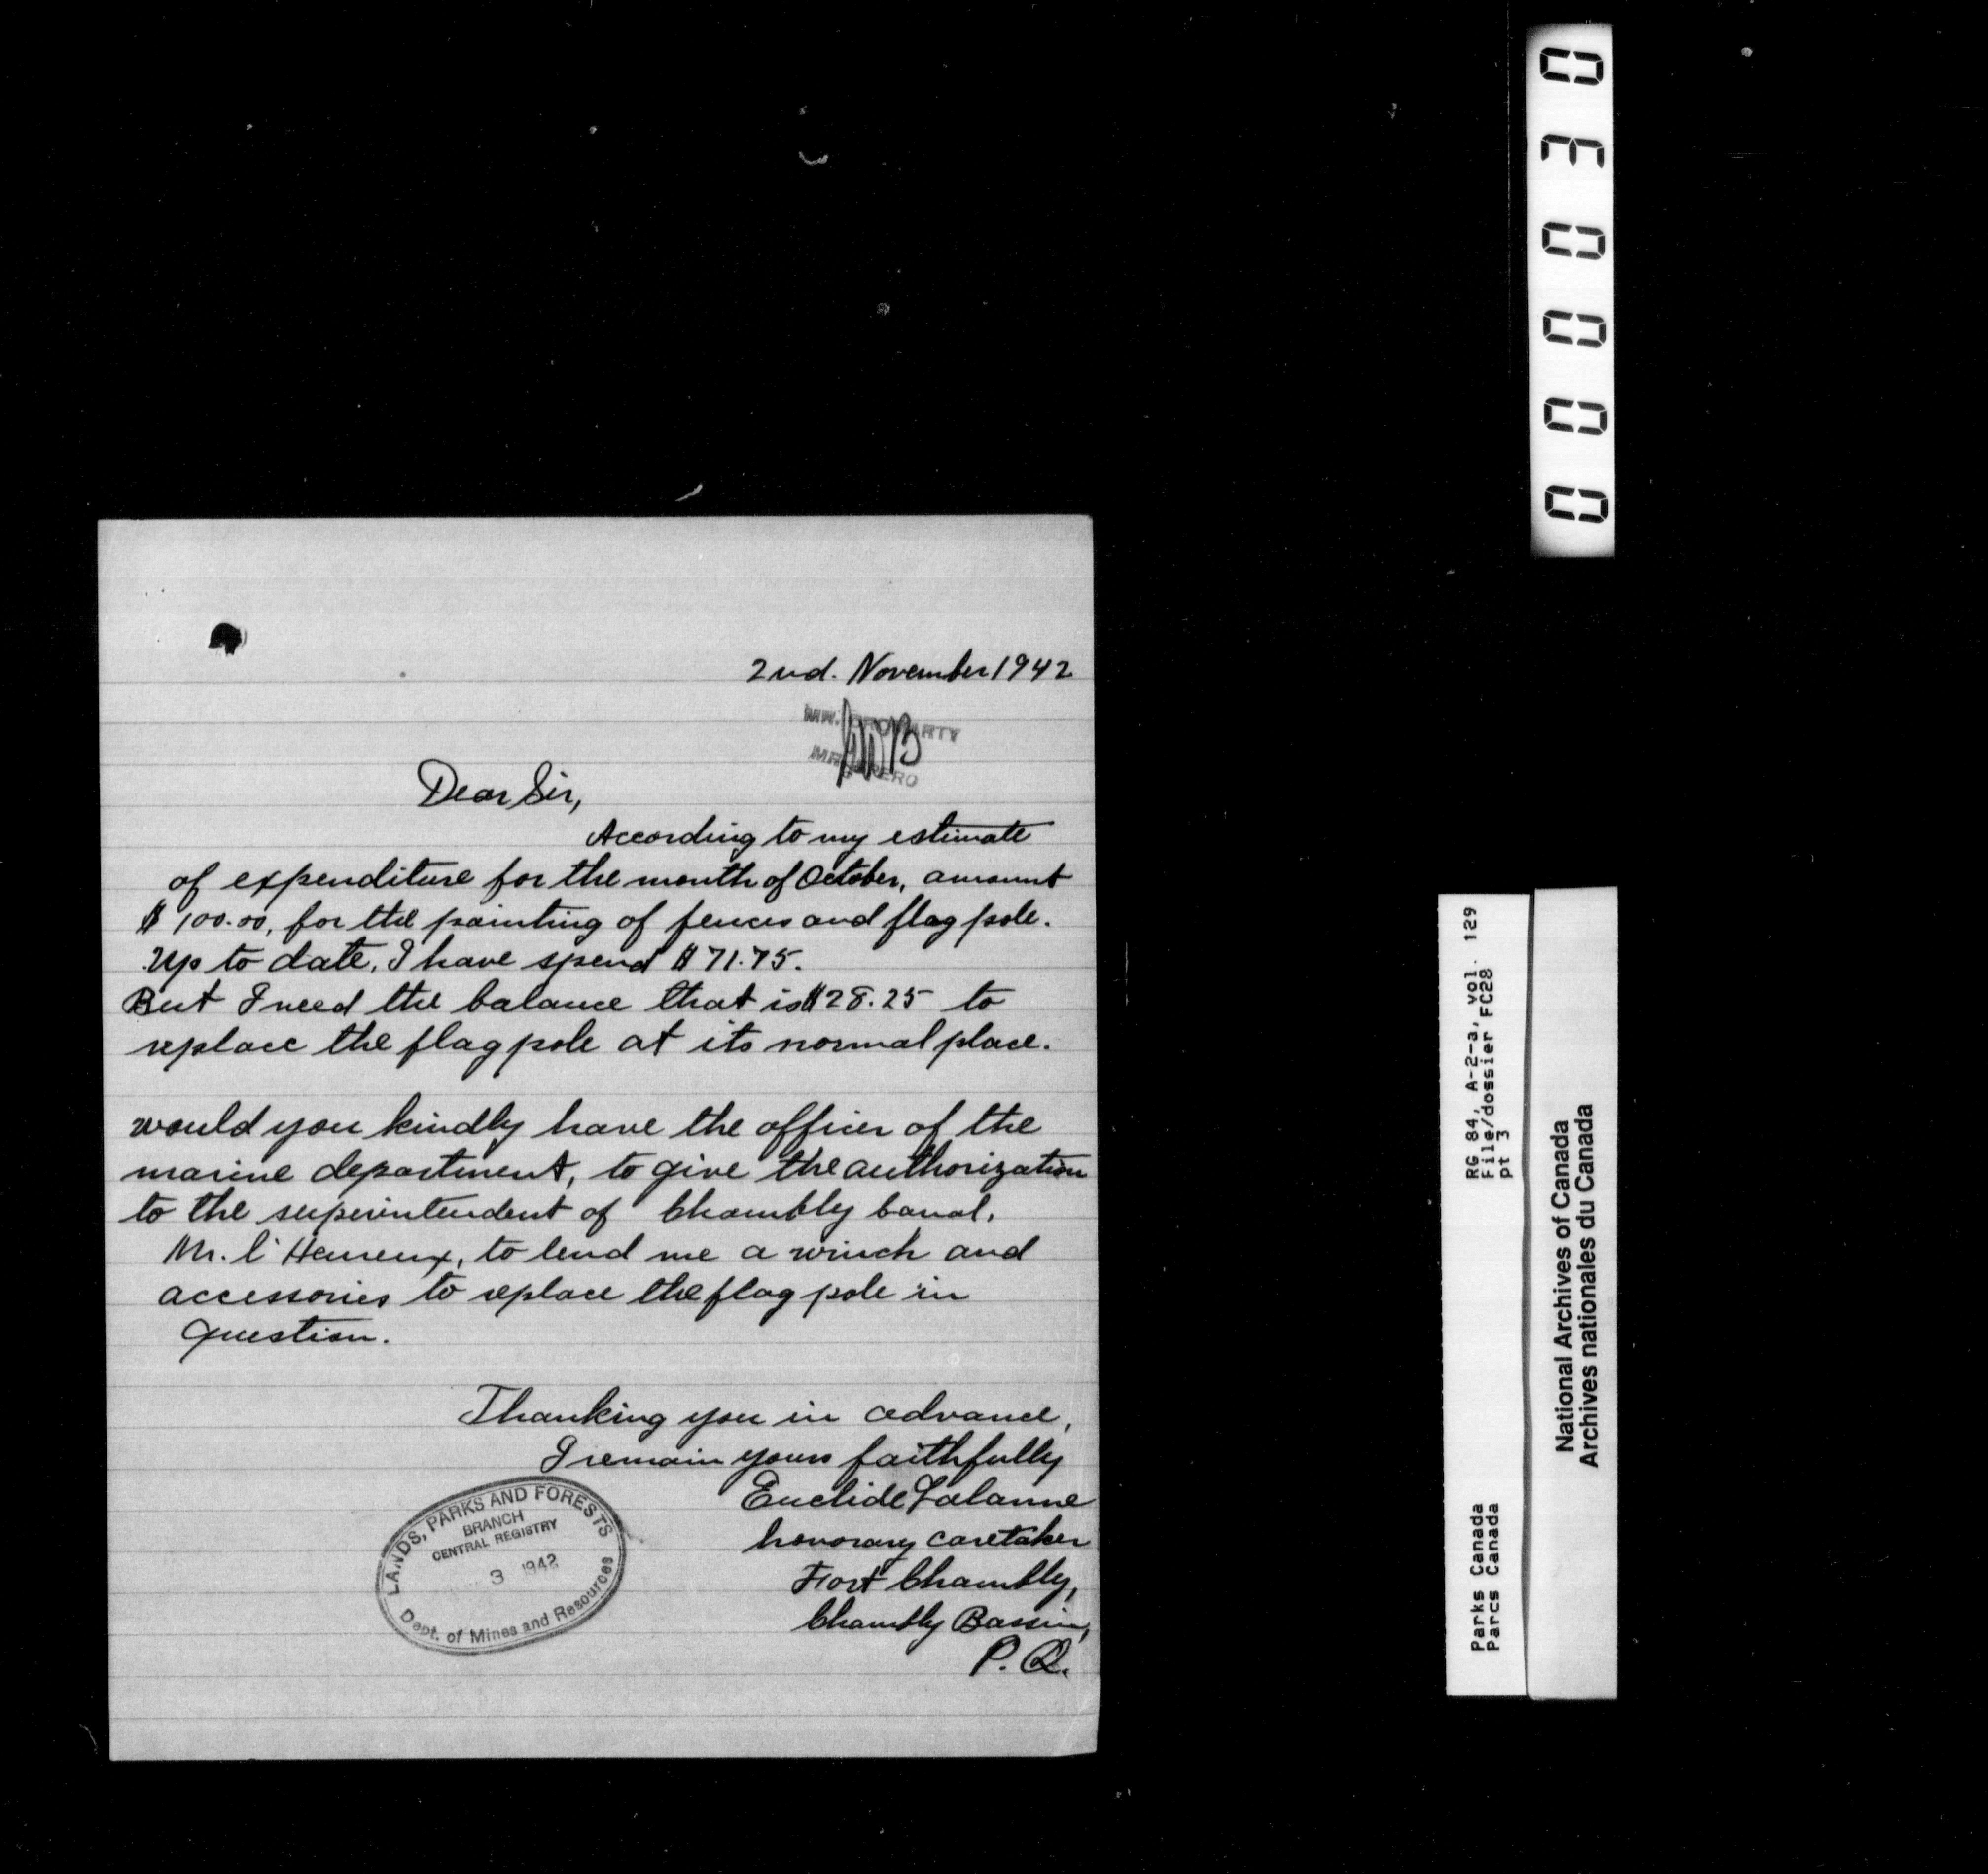 2nd. November 1942
MR. CROMARTY
MR. SPERO
Dear Sir,
According to my estimate
of expenditure for the month of October, amount
$ 100.00, for the painting of fences and flag pole.
Up to date, I have spend $ 71.75.
But I need the balance that is $ 28.25 to
replace the flag pole at its normal place.
would you kindly have the officer of the
marine department, to give the authorization
to the superintendent of Chambly Canal,
Mr. l'Heureux, to lend me a winch and
accessories to replace the flag pole in
question.
Thanking you in advance,
I remain yours faithfully
Euclide Lalanne
honorary caretaker
Fort Chambly,
Chambly Bassin,
P.Q.
LANDS, PARKS AND FORESTS
BRANCH
CENTRAL REGISTRY
3 1942
Dept. of Mines and Resources
000030
RG 84, A-2-a, vol. 129
File/dossier FC28
pt 3
Parks Canada
Parcs Canada
National Archives of Canada
Archives nationales du Canada